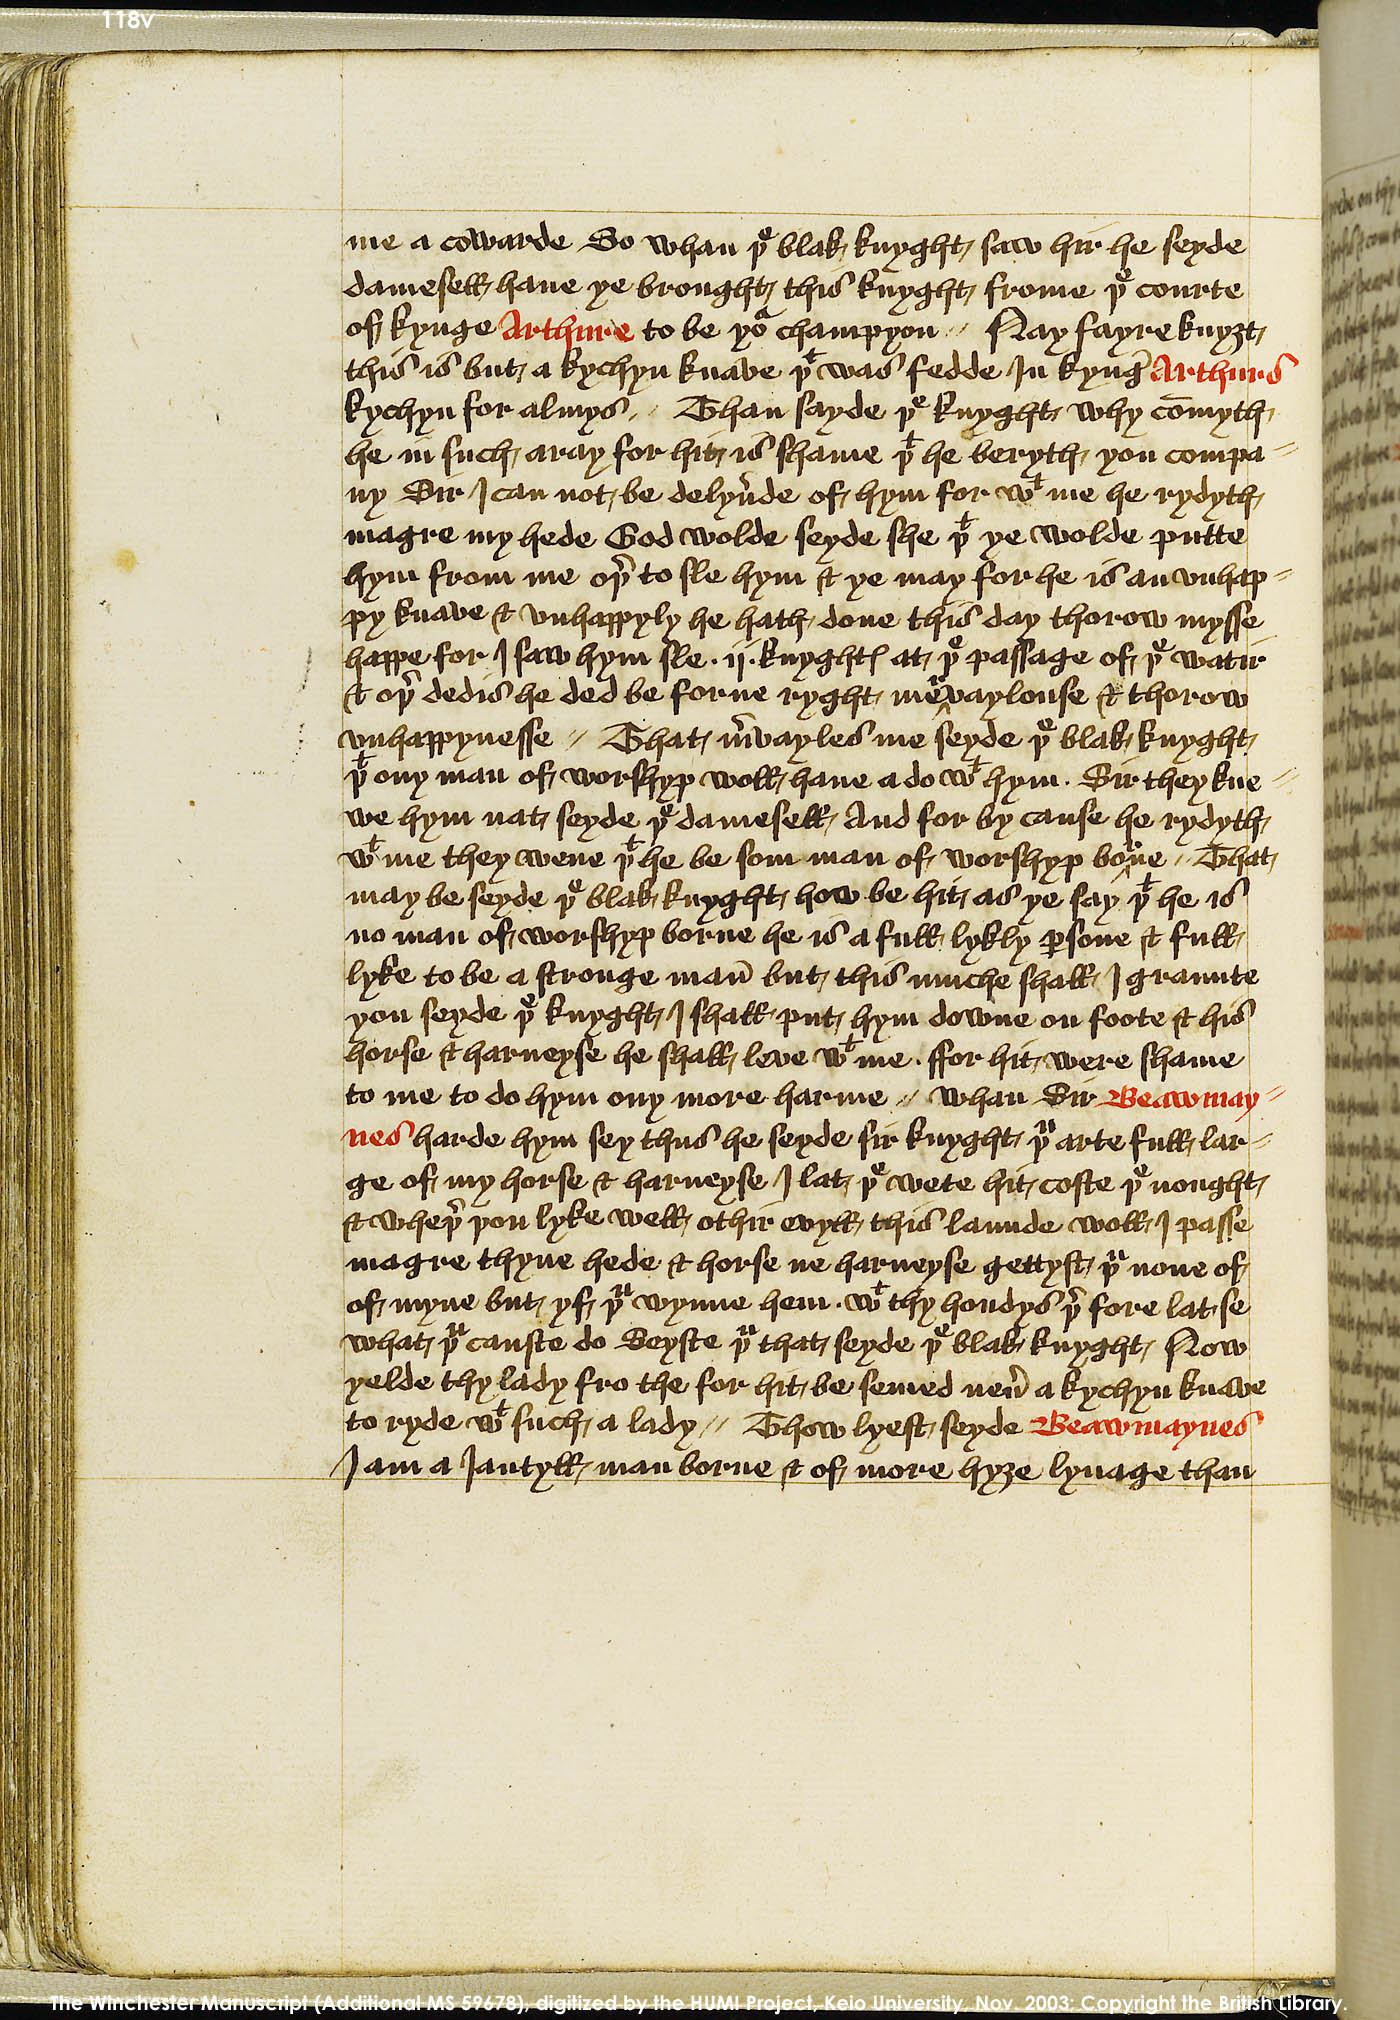 118v
me a cowarde So whan þᵉ blak knyght saw hir he seyde
damesell haue ye brought this knyght frome þᵉ courte
of kynge Arthure to be yoʳ champyon // Nay fayre knyȝt
this is but a kychyn knave þᵗ was fedde In kyng̃ Arthurs
kychyn for almys // Than sayde þᵉ knyght why cōmyth
he in such aray for hit is shame þᵗ he beryth you compa=
ny Sir I can not be delyũde of hym for wᵗ me he rydyth
magre my hede God wolde seyde she þᵗ ye wolde putte
hym from me oþ̃ to sle hym & ye may for he is an vnhap=
py knave & vnhappyly he hath done this day thorow mysse
happe for I saw hym sle .ij. knyghtꝭ at þᵉ passage of þᵉ watir
& oþ̃ dedis he ded be forne ryght meʳvaylouse & thorow
vnhappynesse // That m̃vayles me seyde þᵉ blak knyght
þᵗ ony man of worshyp woll haue a do wᵗ hym . Sir they kne=
we hym nat seyde þᵉ damesell And for by cause he rydyth
wᵗ me they wene þᵗ he be som man of worshyp boʳne // That
may be seyde þᵉ blak knyght how be hit as ye say þᵗ he is
no man of worshyp borne he is a full lykly ꝑsone & full
lyke to be a stronge man̄ but this muche shall I graunte
you seyde þᵉ knyght I shall put hym downe on foote & his
horse & harneyse he shall leve wᵗ me . ffor hit were shame
to me to do hym ony more harme // whan Sir Beawmay=
nes harde hym sey thus he seyde sir knyght þᵘ arte full lar=
ge of my horse & harneyse I lat þᵉ wete hit coste þᵉ nought
& wheþ̃ þou lyke well othir evyll this launde woll I passe
magre thyne hede & horse ne harneyse gettyst þᵘ none of
of myne but yf þᵘ wynne hem . wᵗ thy hondys þ̃ fore lat se
what þᵘ canste do Seyste þᵘ that seyde þᵉ blak knyght Now
yelde thy lady fro the for hit be semed neũ a kychyn knave
to ryde wᵗ such a lady // Thow lyest seyde Beawmaynes
I am a Jantyll man borne & of more hyȝe lynage than
The Winchester Manuscript (Additional MS 59678), digitized by the HUMI Project, Keio University, Nov. 2003; Copyright the British Library.